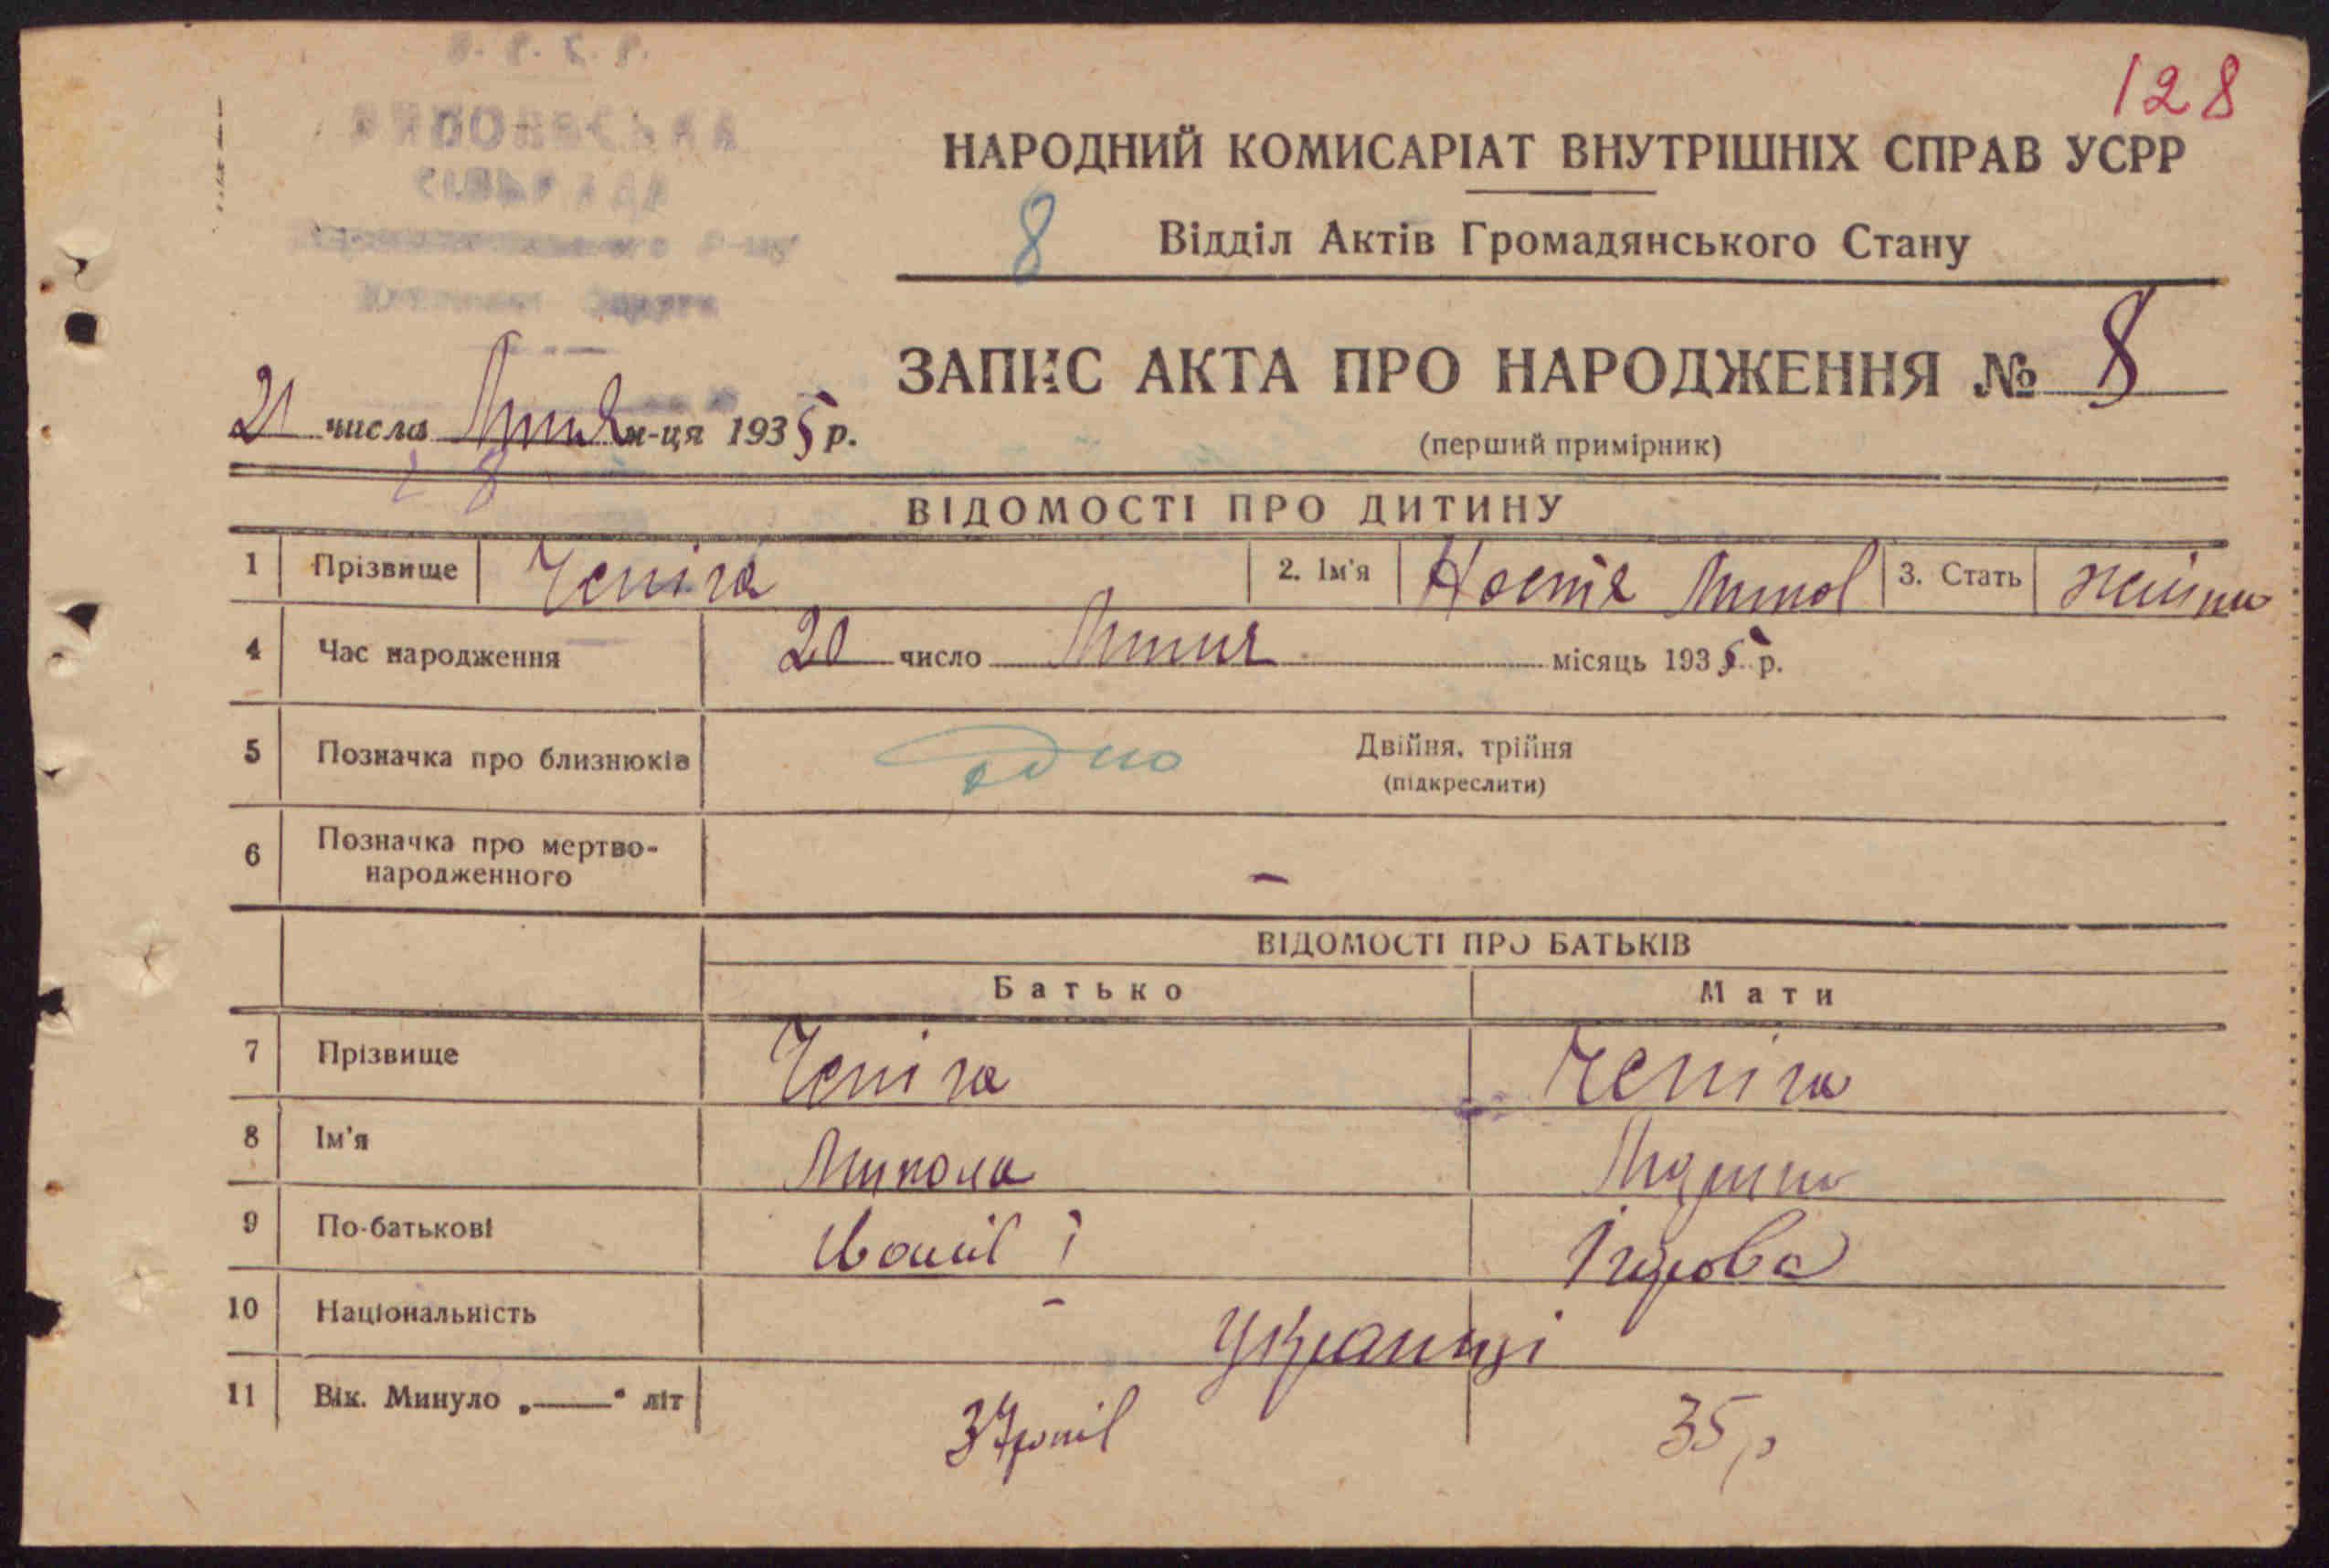 128
НАРОДНИЙ КОМИСАРІАТ ВНУТРІШНІХ СПРАВ УСРР
8 Відділ Актів Громадянського Стану
ЗАПИС АКТА ПРО НАРОДЖЕННЯ № 8
21 числа м-ця 1935 р.
(перший примірник)
ВІДОМОСТІ ПРО ДИТИНУ
1 Прізвище Чепіга 2. Ім'я Настя Микол 3. Стать
4 Час народження 20 число місяць 1935 р.
5 Позначка про близнюків одно Двійня, трійня
(підкреслити)
6 Позначка про мертво-
народженного –
ВІДОМОСТІ ПРО БАТЬКІВ
Батько Мати
7 Прізвище Чепіга Чепіга
8 Ім'я Микола Марина
9 По-батькові
10 Національність Українці
11 Вік. Минуло „——“ літ 37 років 35 р